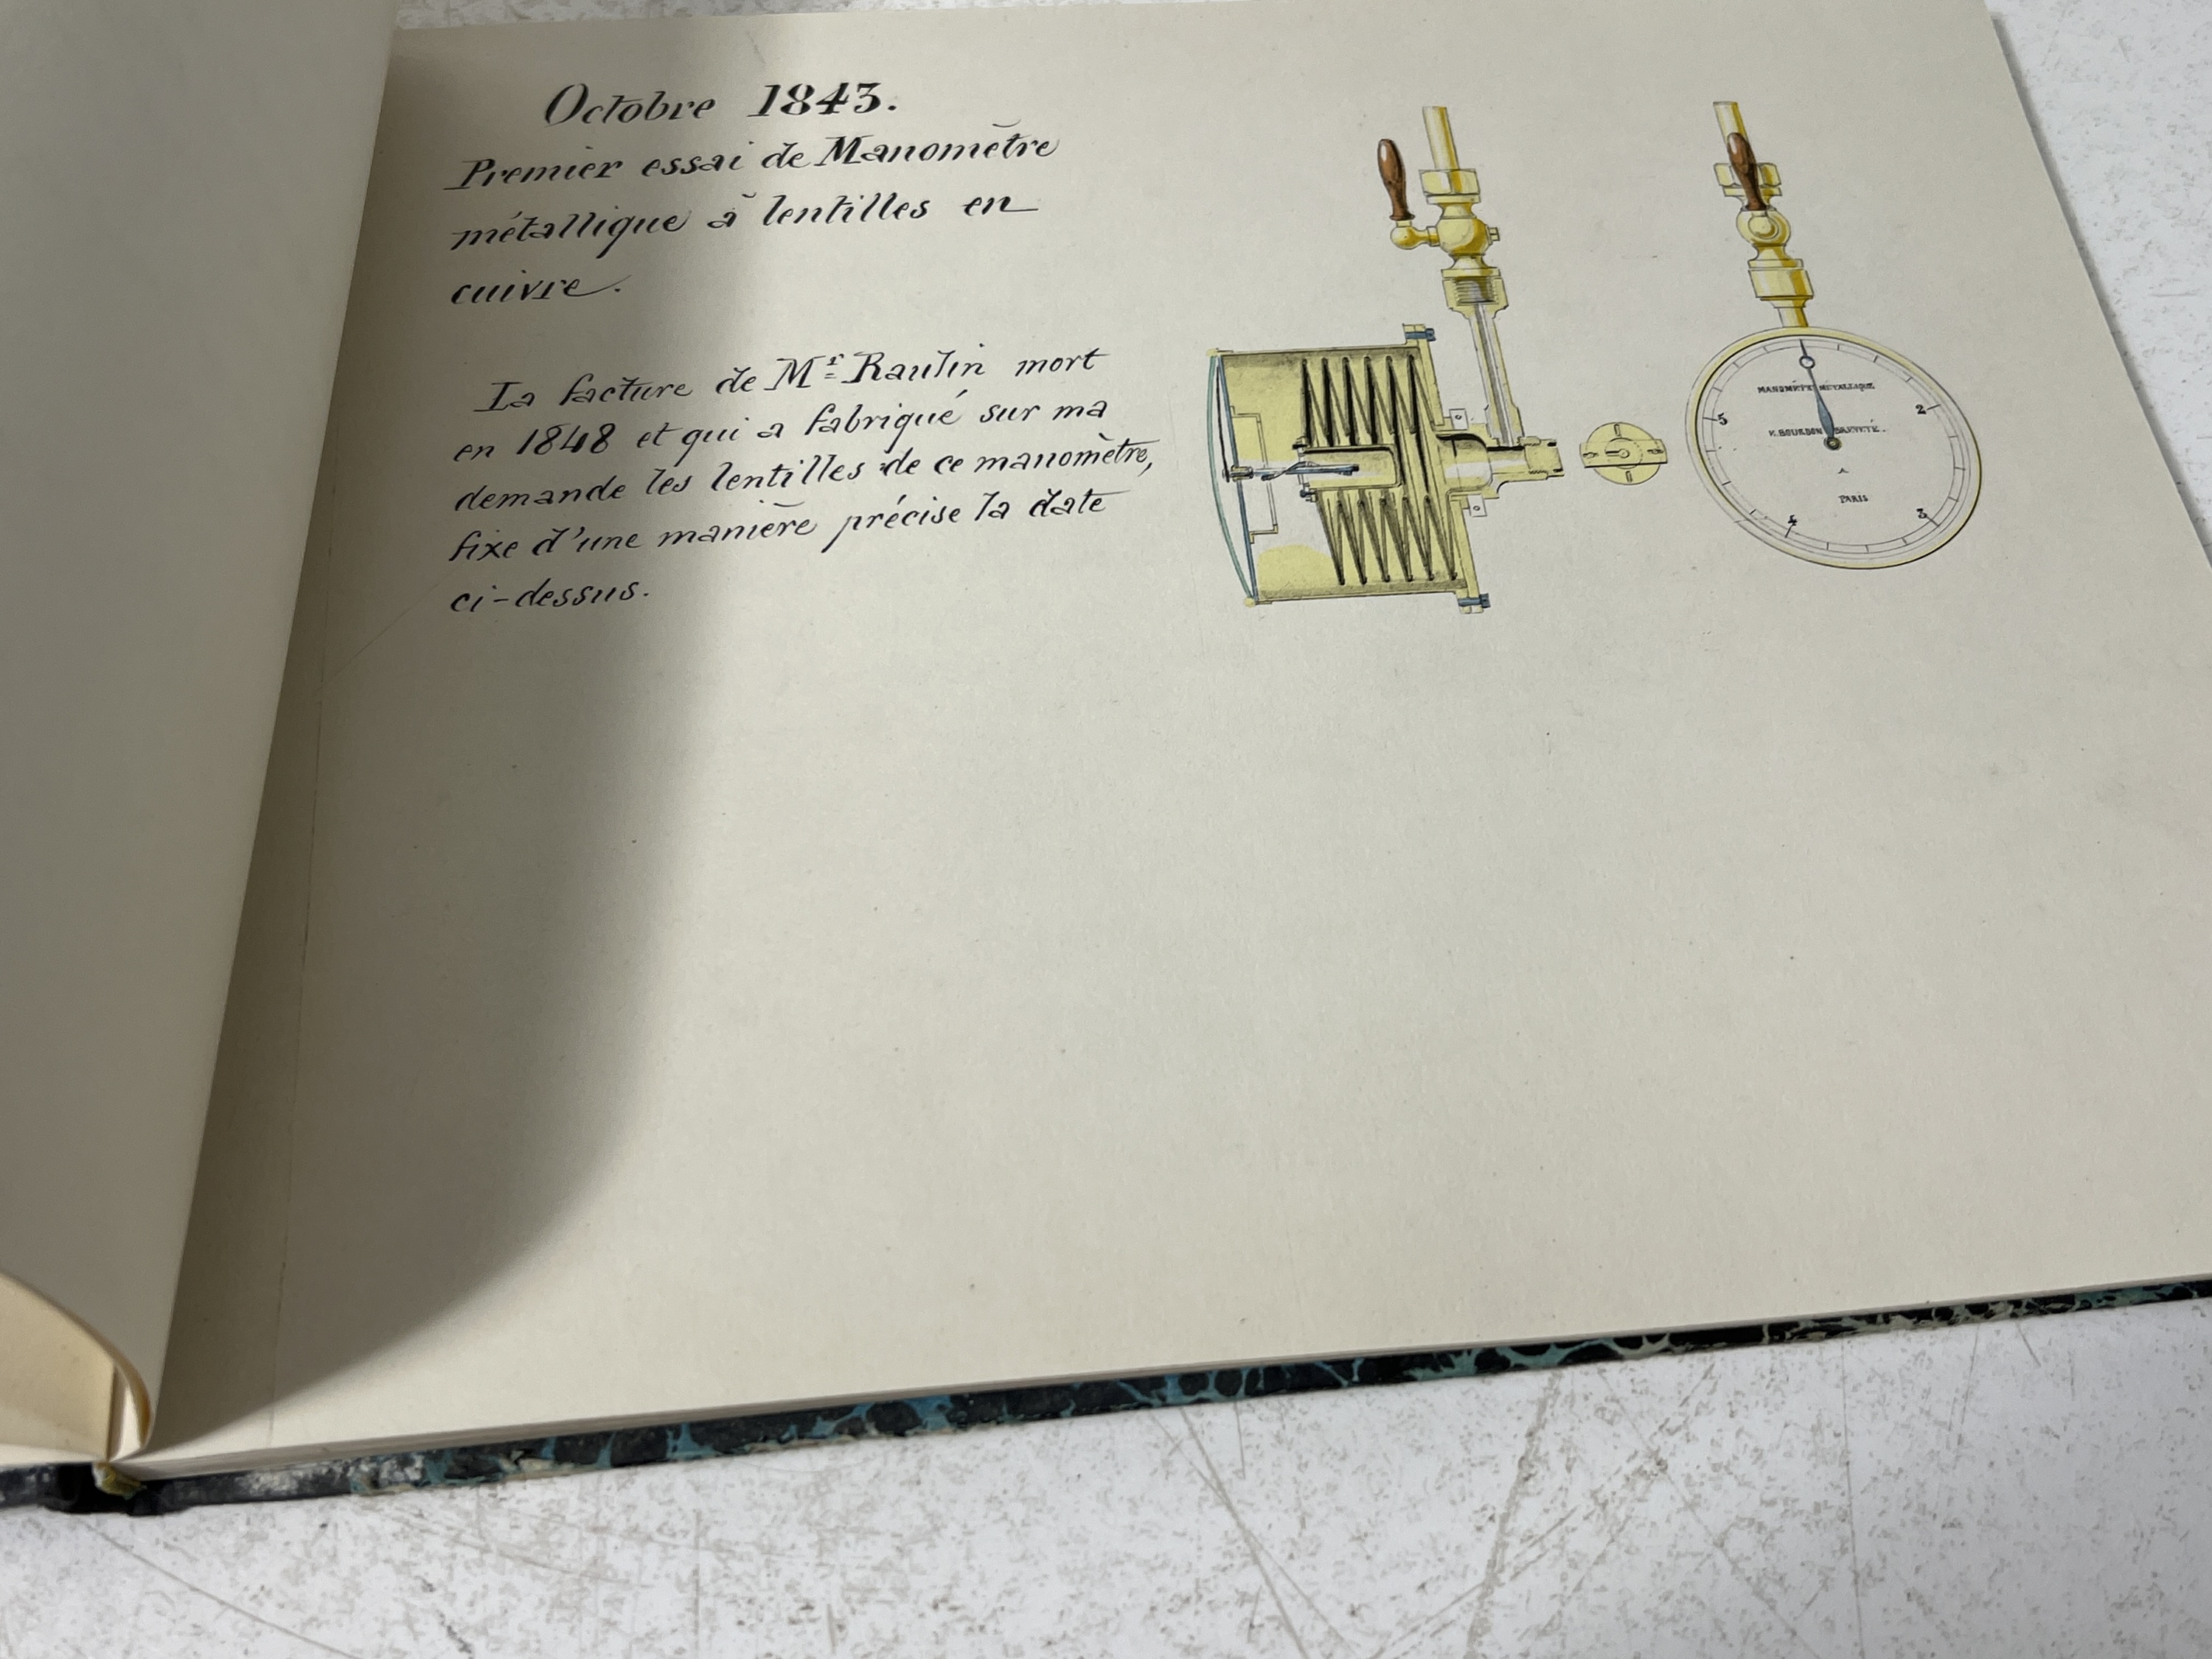 Octobre 1843.
Premier essai de Manomètre
métallique à lentilles en
cuivre.
La facture de Mr Raulin mort
en 1848 et qui a fabriqué sur ma
demande les lentilles de ce manomètre,
fixe d'une manière précise la date
ci-dessus.
MANOMÈTRE MÉTALLIQUE
E. BOURDON BREVETÉ.
PARIS
5
2
4
3